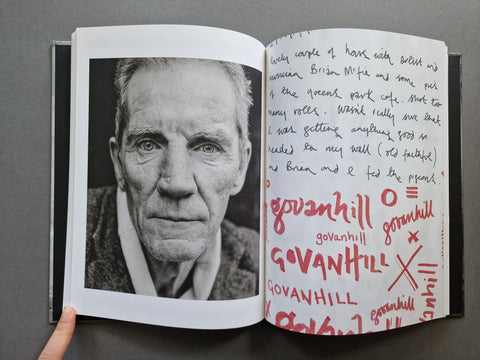 lovely couple of hours with artist and
musician Brian McFie and some pics
at the queens park cafe. shot too
many rolls. wasn't really sure that
I was getting anything good so
headed to my wall (old faithful)
and Brian and I fed the pigeons.
govanhill
govanhill
govanhill
GOVANHILL
GOVANHILL
govanhill
govanhill